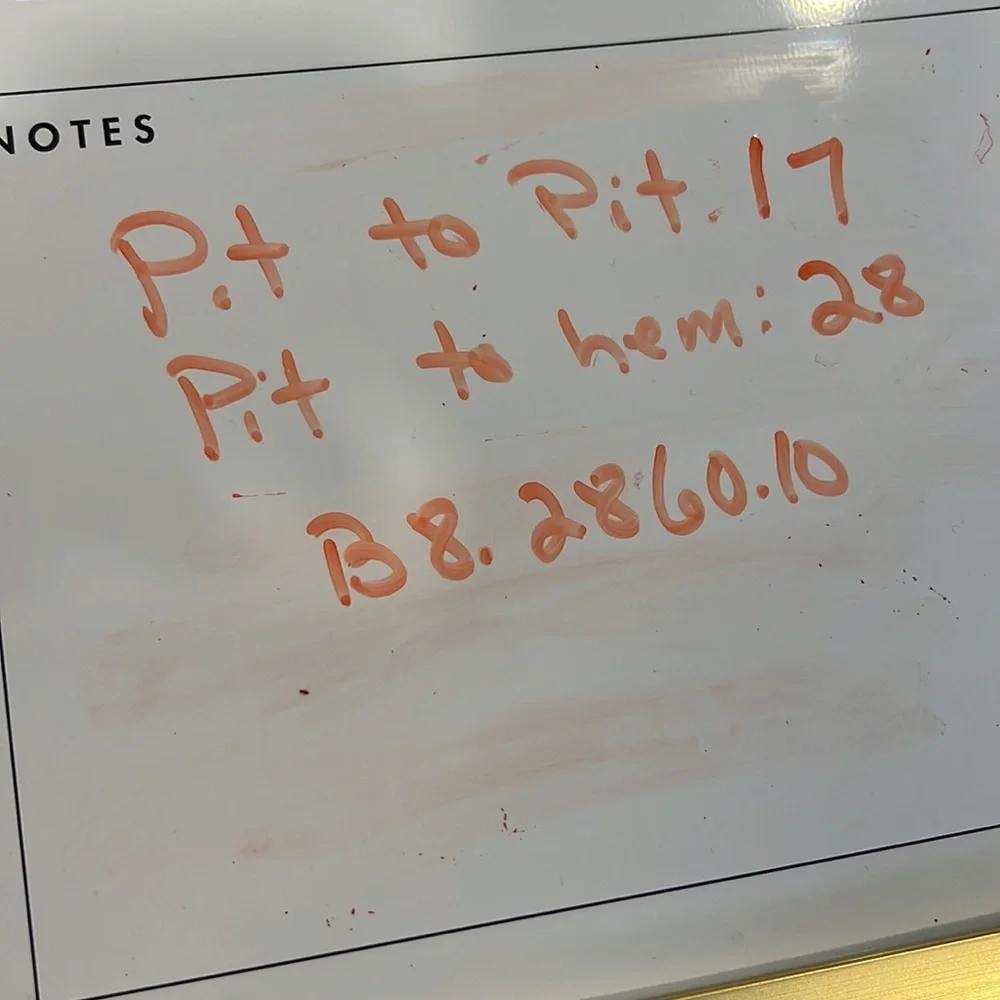 NOTES
Pit to Pit. 17
Pit to hem: 28
B8.2860.10